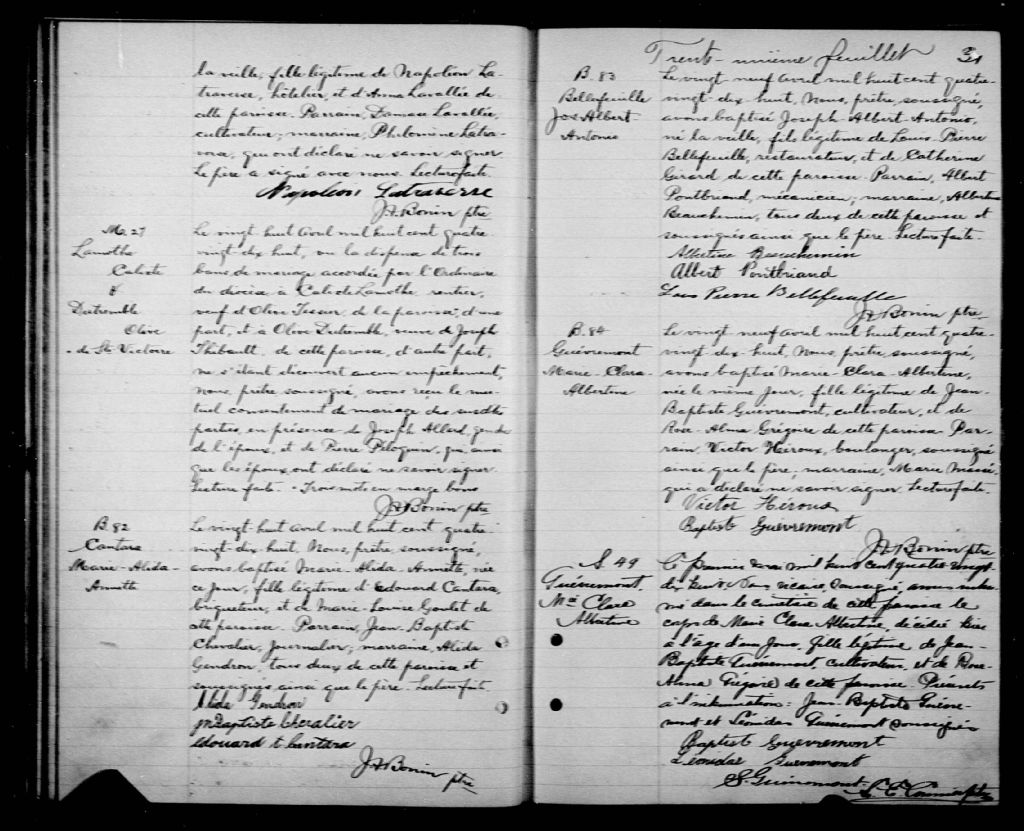 la veille, fille légitime de Napoléon La-
traverse, hôtelier, et d'Anna Lavallée de
cette paroisse. Parrain, Damase Lavallée,
cultivateur; marraine, Philomine Latra-
verse, qui ont déclaré ne savoir signer.
Le père a signé avec nous. Lecture faite.
Napoléon Latraverse
J. A. Bonin ptre
M. 27
Lamothe
Calixte
&
Dutremble
Olive
- de Ste Victoire
Le vingt huit avril mil huit cent quatre
vingt dix huit, vu la dispense de trois
bans de mariage accordée par l'Ordinaire
du diocèse à Calixte Lamothe, rentier,
veuf d'Olive Tessier, de la paroisse, d'une
part, et à Olive Dutremble, veuve de Joseph
Thibault, de cette paroisse, d'autre part,
ne s'étant découvert aucun empêchement,
Nous, prêtre soussigné, avons reçu le mu-
tuel consentement de mariage des susdites
parties, en présence de Joseph Allard, gendre
de l'époux, et de Pierre Péloquin, qui, ainsi
que les époux, ont déclaré ne savoir signer.
Lecture faite. - Trois mots en marge bons
J. A. Bonin ptre
B. 82
Cantara
Marie-Alida-
Annette
Le vingt huit avril mil huit cent quatre
vingt-dix huit, Nous, prêtre, soussigné,
avons baptisé Marie Alida Annette, née
ce jour, fille légitime d'Edouard Cantara,
briqueteur, et de Marie-Louise Goulet de
cette paroisse. Parrain, Jean-Baptiste
Chevalier, journalier; marraine, Alida
Gendron, tous deux de cette paroisse et
soussignés ainsi que le père. Lecture faite
Alida Gendron
jn Baptiste Chevalier
edouard t cantara
J. A. Bonin ptre
Trente-unième feuillet 31
B. 83
Bellefeuille
Jos Albert
Antonio
Le vingt neuf avril mil huit cent quatre-
vingt-dix huit, Nous, prêtre, soussigné,
avons baptisé Joseph-Albert Antonio,
né la veille, fils légitime de Louis Pierre
Bellefeuille, restaurateur, et de Catherine
Girard de cette paroisse. Parrain, Albert
Pontbriand, mécanicien; marraine, Albertine
Beauchemin, tous deux de cette paroisse et
soussignés ainsi que le père. Lecture faite.
Albertine Beauchemin
Albert Pontbriand
Louis Pierre Bellefeuille
J. A. Bonin ptre
B. 84
Guévremont
Marie-Clara-
Albertine
Le vingt neuf avril mil huit cent quatre-
vingt-dix huit, Nous, prêtre, soussigné,
avons baptisé Marie-Clara-Albertine,
née le même jour, fille légitime de Jean-
Baptiste Guévremont, cultivateur, et de
Rose-Alma Grégoire de cette paroisse. Par-
rain, Victor Héroux, boulanger, soussigné
ainsi que le père; marraine, Marie
qui a déclaré ne savoir signer. Lecture faite.
Victor Héroux
Baptist Guévremont
J. A. Bonin ptre
S. 49
Guévremont
Mie Clara
Albertine
Le premier mai mil huit cent quatre vingt
dix huit, Nous vicaire soussigné, avons inhu-
mé dans le cimetière de cette paroisse le
corps de Marie Clara Albertine, décédée hier
à l'âge d'un jour, fille légitime de Jean-
Baptiste Guévremont cultivateur, et de Rose-
Alma Grégoire de cette paroisse. Présents
à l'inhumation: Jean-Baptiste Guévre-
mont et Léonidas Guévremont soussignés
Baptist Guévremont
Léonidas Guévremont
S. Guévremont